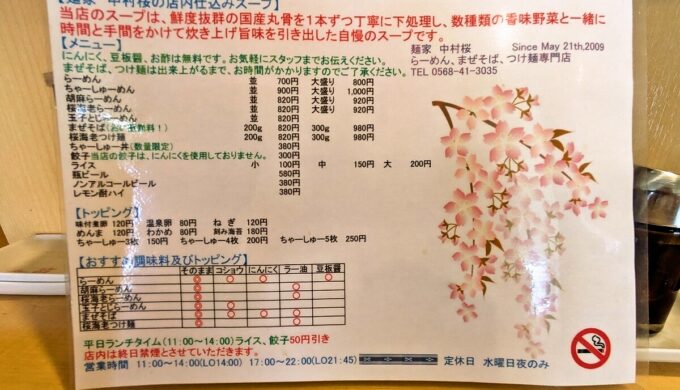 【麺家 中村桜の店内仕込みスープ】
当店のスープは、鮮度抜群の国産丸骨を1本ずつ丁寧に下処理し、数種類の香味野菜と一緒に
時間と手間をかけて炊き上げ旨味を引き出した自慢のスープです。
麺家 中村桜 Since May 21th,2009
らーめん、まぜそば、つけ麺専門店
TEL 0568-41-3035
【メニュー】
にんにく、豆板醤、お酢は無料です。お気軽にスタッフまでお伝えください。
まぜそば、つけ麺は出来上がるまで、お時間がかかりますのでご了承ください。
らーめん 並 700円 大盛り 800円
ちゃーしゅーめん 並 900円 大盛り 1,000円
胡麻らーめん 並 820円 大盛り 920円
桜海老らーめん 並 820円 大盛り 920円
玉子とじらーめん 並 820円 大盛り 920円
まぜそば(おい飯無料!) 200g 820円 300g 980円
桜海老つけ麺 200g 820円 300g 980円
ちゃーしゅー丼(数量限定) 380円
餃子当店の餃子は、にんにくを使用しておりません。 300円
ライス 小 100円 中 150円 大 200円
瓶ビール 580円
ノンアルコールビール 380円
レモン酎ハイ 380円
【トッピング】
味付煮卵 120円 温泉卵 80円 ねぎ 120円
めんま 120円 わかめ 80円 刻み海苔 180円
ちゃーしゅー3枚 150円 ちゃーしゅー4枚 200円 ちゃーしゅー5枚 250円
【おすすめ調味料及びトッピング】
そのまま コショウ にんにく ラー油 豆板醤
らーめん ○ ○ ○ ○
胡麻らーめん ○
桜海老らーめん ○
玉子とじらーめん ○ ○
まぜそば ○ ○ ○ ○
桜海老つけ麺 ○ ○
平日ランチタイム(11:00~14:00)ライス、餃子50円引き
店内は終日禁煙とさせていただきます。
営業時間 11:00~14:00(LO14:00) 17:00~22:00(LO21:45) 定休日 水曜日夜のみ